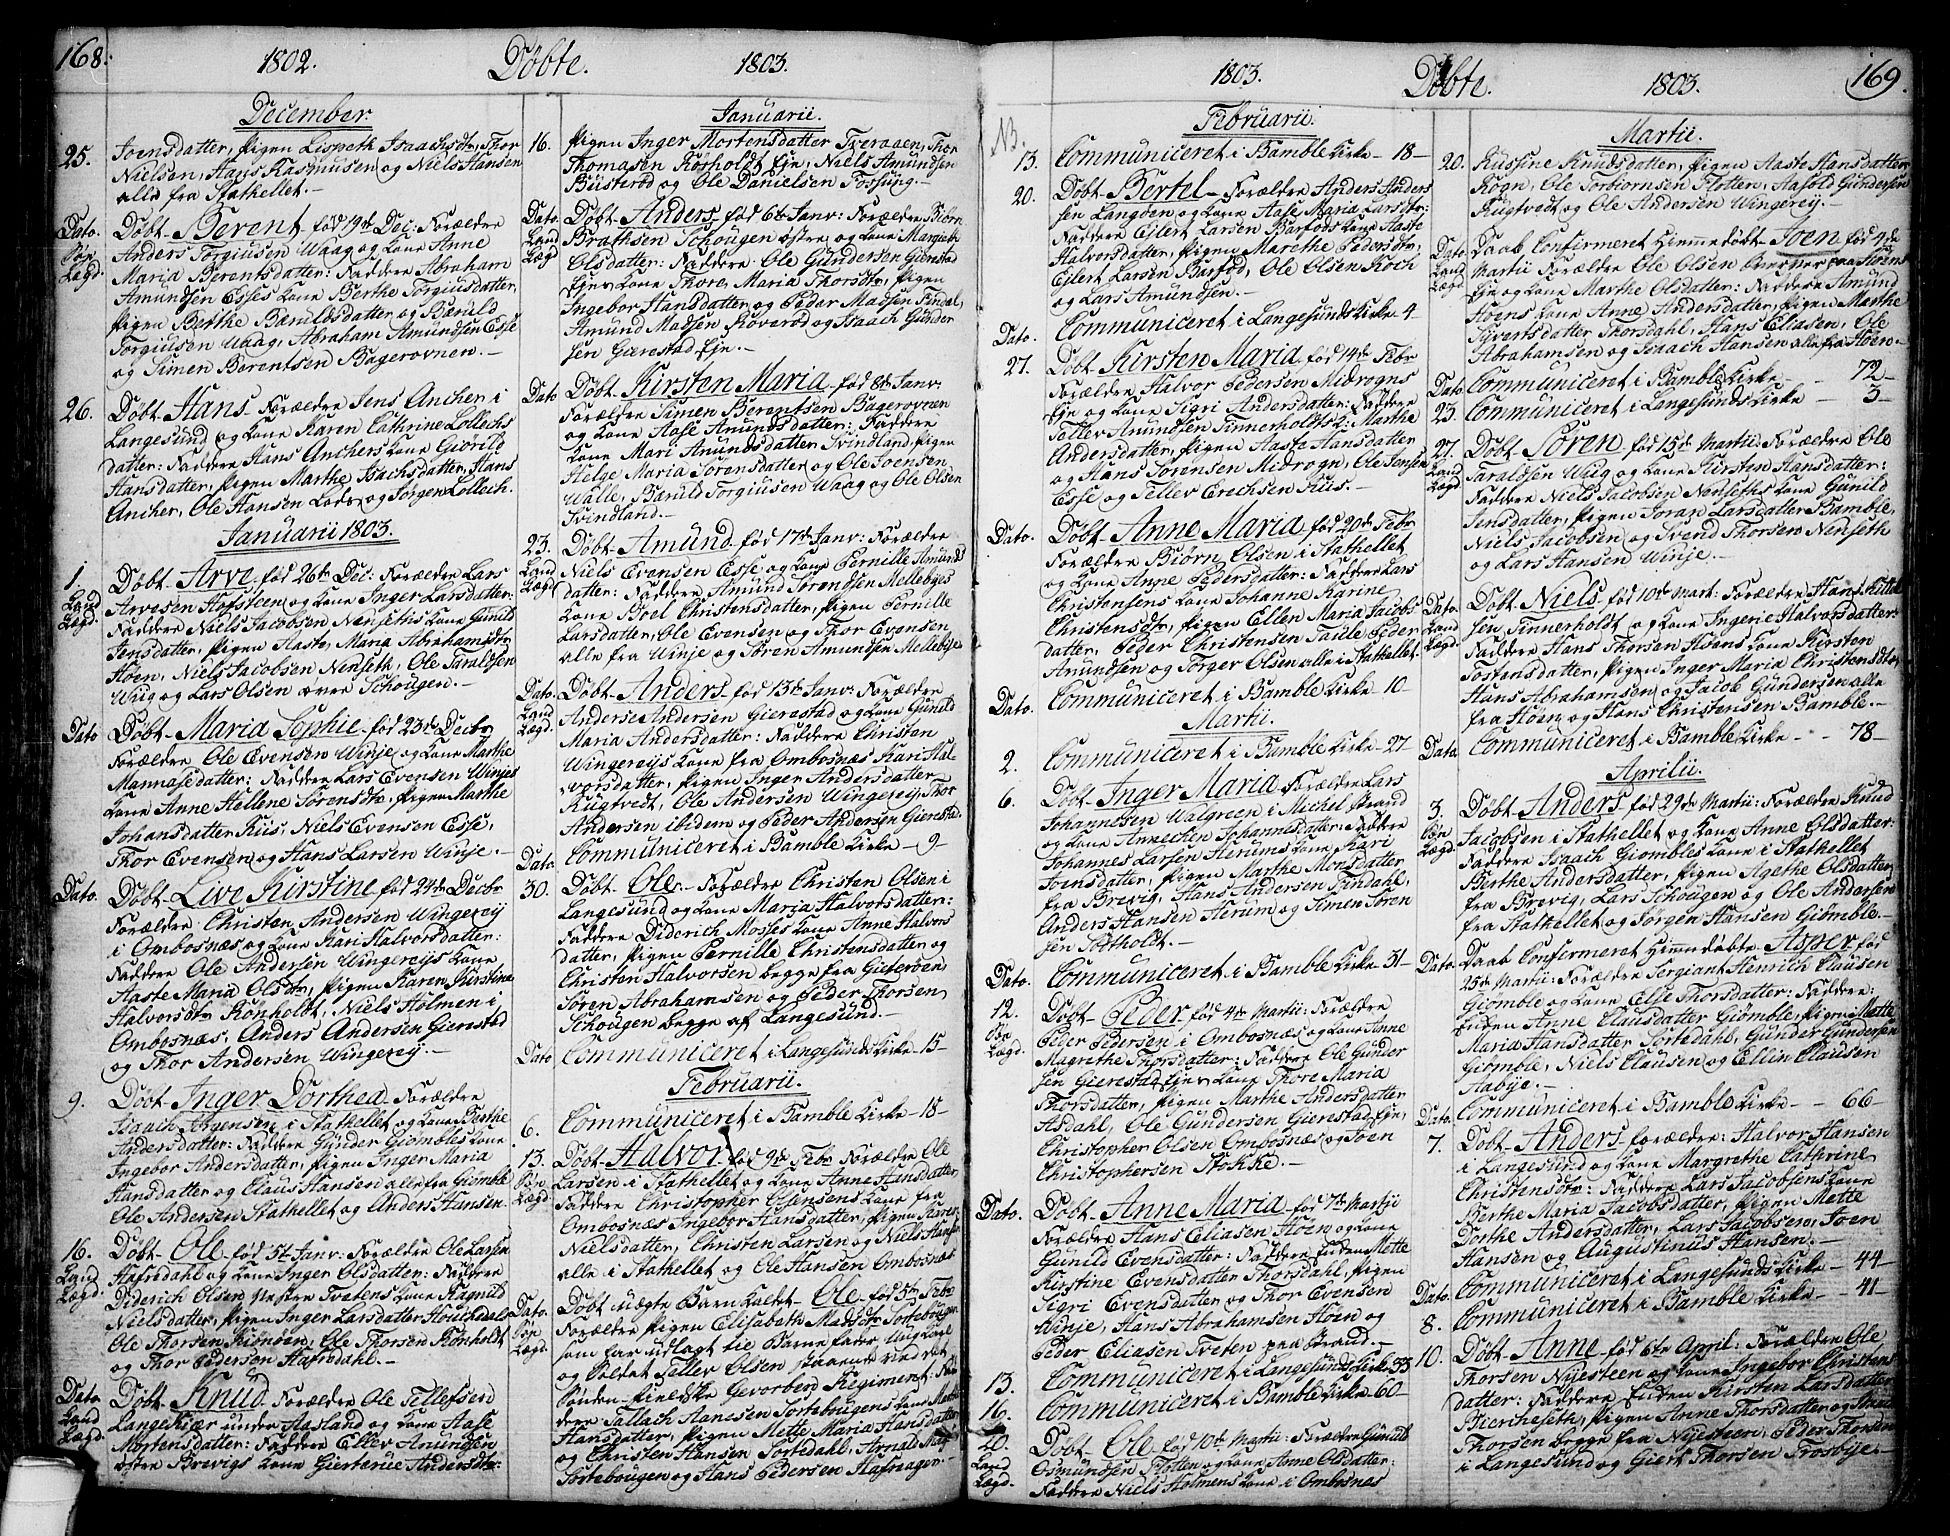 168.
1802. Döbte. 1803.
December.
25. Joensdatter, Pigen Lispeth Isaachsdtr, Thor
Nielsen, Hans Rasmusen og Niels Hansen
alle fra Stathellet.
Dato. Döbt Berent föd 19de Dec: Forældre
Anders Torgiusen Waag og Kone Anne
Maria Berentsdatter: Faddere Abraham
Amundsen Esses Kone Berthe Torgiusdatter,
Pigen Berthe Bæruldsdatter og Bæruld
Torgiusen Waag, Abraham Amundsen Esse
og Simen Berentsen Bagerovnen.
26. Döbt Hans Forældre Jens Ancher i
Langesund og Kone Karen Cathrine Lollechs
datter: Faddere Hans Anchers Kone Giorild
Hansdatter, Pigen Marthe Isachsdatter, Hans
Ancher, Ole Hansen Lods og Jörgen Lollech.
Januarii 1803.
1. Döbt Arve föd 26de Dec: Forældre Lars
Land Arvesen Hofsteen og Kone Inger Larsdatter:
Lægd. Faddere Niels Jacobsen Nenseths Kone Gunild
Jensdatter, Pigen Aaste Maria Abrahamsdtr
Hoen, Niels Jacobsen Nenseth, Ole Taraldsen
Wiig og Lars Olsen övre Schougen.
Dato Döbt Maria Sophie föd 23de Decbr
Forældre Ole Evensen Winje og Kone Marthe
Mannasedatter: Faddere Lars Evensen Winjes
Kone Anne Hellene Sörensdtr, Pigen Marthe
Johansdatter Riis, Niels Evensen Esse,
Thor Evensen og Hans Larsen Winje.
Dato. Döbt Live Kirstine föd 24de Decbr
Forældre Christen Andersen Wingereij
i Ombosnæs og Kone Kari Halvorsdatter:
Faddere Ole Andersen Wingereijs Kone
Aaste Maria Olsdtr, Pigen Karen Kirstine
Halvorsdtr Rönholdt, Niels Holmen i
Ombosnæs, Anders Andersen Gierestad
og Thor Andersen Wingereij.
9. Döbt Inger Dorthea Forældre
Isaach Jörgensen i Stathellet og Kone Berthe
Andersdatter: Faddere Gunder Giömbles Kone
Ingebor Andersdatter, Pigen Inger Maria
Hansdatter og Claus Hansen alle fra Giömble
Ole Andersen Stathellet og Anders Hansen.
16. Döbt Ole föd 5te Janv: Forældre Ole Larsen
Land Hafredahl og Kone Inger Olsdatter: Faddere
Lægd. Diderich Olsen Vestre Tvetens Kone Ragnild
Nielsdatter, Pigen Inger Larsdatter
Ole Thorsen, Ole Thorsen Rönholdt
og Thor Pedersen Hafredahl.
Dato Döbt Knud Forældre Ole Tellefsen
Land Langekiær under Aasland og Kone Aase
Lægd. Mortensdatter: Faddere Eller Anundsen
östre Brevigs Kone Andersdtr:
Januarii.
16. Pigen Inger Mortensdatter Tveraaen, Thor
Thomasen Rörholdt Eje, Niels Amundsen
Biisteröd og Ole Danielsen Fossung.
Dato. Döbt Anders föd 6te Janv: Forældre Biörn
Land Brathsen Schougen östre og Kone Margieth
Lægd Olsdatter: Faddere Ole Gundersen Gierestad
Ejes Kone Thore Maria Thorsdtr, Pigen
Ingebor Hansdatter og Peder Madsen Findal,
Amund Madsen Roveröd og Isaach Gunder
sen Gierestad Eje.
Dato Döbt Kirsten Maria föd 8de Janv:
Forældre Simen Berentsen Bagerovnen
og Kone Aase Amundsdatter: Faddere
Kone Mari Amundsdatter Svindland, Pigen
Helge Maria Sörensdatter, og Ole Joensen
Walle, Baruld Torgiusen Waag og Ole Olsen
Svindland.
23. Döbt Amund föd 17de Janv: Forældre
Land Niels Evensen Esse og Kone Pernille Amunds
Lægd datter: Faddere Amund Sörensen Mellebyes
Kone Joel Christensdatter, Pigen Pernille
Larsdatter, Ole Evensen og Thor Evensen
alle fra Winje og Sören Amundsen Mellebye.
Dato. Döbt Anders föd 13de Janv: Forældre
Land Anders Andersen Gierestad og Kone Gunild
Lægd. Maria Andersdatter: Faddere Christen
Wingereijs Kone fra Ombosnæs Kari Hal-
vorsdatter, Pigen Inger Andersdatter
Rugtvedt, Ole Andersen Wingereij, Thor
Andersen ibidem og Peder Andersen Gierestad.
Dato. Communiceret i Bamble Kirke - 9 -
30. Döbt Ole Forældre Christen Olsen i
Langesund og Kone Maria Halvorsdatter:
Faddere Diderich Mosses Kone Anne Halvors
datter, Pigen Pernille Christensdatter og
Christen Halvorsen begge fra Gieteröen
Sören Abrahamsen og Peder Thorsen
Schougen begge af Langesund.
Dato Communiceret i Langesunds Kirke - 15 -
Februarii.
6. Communiceret i Bamble Kirke - 18 -
13. Döbt Halvor föd 9de Febr Forældre Ole
Larsen i Stathellet og Kone Anne Hansdatter
Lægd. Faddere Christopher Olsensens Kone fra
Ombosnæs Ingebor Hansdatter, Pigen Karen
Nielsdatter, Christen Larsen og Niels Hansen
alle i Stathellet og Ole Hansen Ombosnæs.
Dato. Döbt uægte Barn kaldet Ole föd 5te Febr
Forældre Pigen Elisabeth Madsdtr Sortebrugen
Lægd. som har udlagt til Barnefader Ungkarl
og Soldat Teller Olsen staaende ved det
Sönden-fieldske Gevorbene Regiment: Fad
dere Tallach Hansen Sortebrugens Kone
Hansdatter, Pigen Mette Maria Hansdatter
og Christen Hansen Sortedahl, Arnold
Sortebrugen og Hans Pedersen Hafsager.
1803. Döbte. 1803. 169.
Februarii.
NB.
13. Communiceret i Bamble Kirke - 18 -
20. Döbt Bertel Forældre Anders Anders
sen Langöen og Kone Aase Maria Larsdtr:
Faddere Eilert Larsen Barfods Kone Aaste
Halvorsdatter, Pigen Marthe Pedersdtr,
Eilert Larsen Barfod, Ole Olsen Koch
og Lars Amundsen.
Dato. Communiceret i Langesunds Kirke 4
27. Döbt Kirsten Maria föd 14de Febr
Forældre Halvor Pedersen Midrogns
Eje og Kone Sigri Andersdatter: Faddere
Teller Anundsen Tinnerholdts K: Marthe
Andersdatter, Pigen Aaste Hansdatter
og Hans Sörensen Midrogn, Ole Jensen
Esse og Teller Erechsen Riis.
Dato. Döbt Anne Maria föd 20de Febr
Forældre Biörn Olsen i Stathellet
og Kone Anne Pedersdatter: Faddere Lars
Christensens Kone Johanne Karine
Christensdtr, Pigen Ellen Maria Jacobs
datter, Peder Christensen Taule, Peder
Amundsen og Torger Olsen alle i Stathellet.
Dato. Communiceret i Bamble Kirke - 10 -
Martii.
2. Communiceret i Bamble Kirke - 27
6. Döbt Inger Maria Forældre Lars
Johannesen Walgreen i Michel Strand
og Kone Annechen Johannesdatter: Faddere
Johannes Larsen Herums Kone Kari
Joensdatter, Pigen Marthe Monsdatter
fra Brevig, Hans Andersen Findahl,
Anders Hansen Herum og Simen Sören
sen Tortholdt.
Dato. Communiceret i Bamble Kirke 31 -
12. Döbt Peder föd 4de Martii: Forældre
Peder Pedersen i Ombosnæs og Kone Anne
Lægd. Magrethe Thorsdatter: Faddere Ole Gunder
sen Gierestad Ejes Kone Thore Maria
Thorsdatter, Pigen Marthe Andersdatter
Aasdahl, Ole Gundersen Gierestad Eje,
Christopher Olsen Ombosnæs og Joen
Christophersen Stokke.
Dato. Döbt Anne Maria föd 7de Martii
Forældre Hans Eliasen Hoen og Kone
Gunild Evensdatter: Faddere Enken Mette
Kirstine Evensdatter Thorsdahl, Pigen
Sigri Evensdatter og Thor Evensen
Winje, Hans Abrahamsen Hoen og
Peder Eliasen Tveten paa Strand.
13. Communiceret i Langesunds Kirke 33
16. Communiceret i Bamble Kirke 60 -
20. Döbt Ole föd 10de Martii: Forældre Gunuld
Land Osmundsen Flotten og Kone Anne Olsdatter:
Lægd. Faddere Niels Holmens Kone i Ombosnæs
Martii.
20. Kassine Knudsdatter, Pigen Aaste Hansdatter
Rogn, Ole Torbiornsen Flotten, Aasold Gundersen
Rugtvedt og Ole Andersen Wingereij.
Dato Daab Confirmeret Hiemmedöbt Joen föd 4de
Land Martii Forældre Ole Olsen paa Hoens
Lægd. Eje og Kone Marthe Olsdatter: Faddere Amund
Hoens Kone Anne Andersdatter, Pigen Marthe
Sivertsdatter Thorsdahl, Hans Eliasen, Ole
Abrahamsen og Isaach Hansen alle fra Hoen.
Dato Communiceret i Bamble Kirke - 72 -
23. Communiceret i Langesunds Kirke - 3 -
27. Döbt Sören föd 15de Martii Forældre Ole
Land Taraldsen Wiig og Kone Kirsten Hansdatter:
Lægd. Faddere Niels Jacobsen Nenseths Kone Gunild
Jensdatter, Pigen Joran Larsdatter Bamble,
Niels Jacobsen og Svend Thorsen Nenseth
og Lars Hansen Winje.
Dato. Döbt Niels föd 10de Mart: Forældre Hans Kittel
Land sen Tinnerholdt og Kone Ingerie Halvorsdatter:
Lægd. Faddere Hans Thorsen Hoens Kone Kirsten
Tostensdatter, Pigen Inger Maria Christensdtr,
Hans Abrahamsen og Jacob Gundersen alle
fra Hoen og Hans Christensen Bamble.
Dato Communiceret i Bamble Kirke - - 78 -
Aprilii.
3. Döbt Anders föd 29de Martii: Forældre Knud
Jacobsen i Stathellet og Kone Anne Olsdatter:
Lægd. Faddere Isaach Giombles Kone i Stathellet
Berthe Andersdatter, Pigen Agethe Olsdatter
fra Brevig, Lars Schougen og Ole Andersen
fra Stathellet og Jörgen Hansen Giömble.
Dato. Daab Confirmeret Hiemmedöbte Asper föd
25de Martii: Forældre Sergiant Henrich Clausen
Giomble og Kone Else Thorsdatter: Faddere:
Enken Anne Clausdatter Giömble, Pigen Mette
Maria Hansdatter Sortedahl, Gunder Gundersen
Giömble, Niels Clausen og Ellin Clausen
Habye.
Dato. Communiceret i Bamble Kirke - - 66 -
7. Döbt Anders Forældre: Halvor Hansen
i Langesund og Kone Margrethe Cathrine
Christensdtr: Faddere Lars Jacobsens Kone
Berthe Maria Jacobsdatter, Pigen Mette
Dorthe Andersdatter, Lars Jacobsen, Joen
Hansen og Augustinus Hansen.
Dato. Communiceret i Langesunds Kirke - 44 -
8. Communiceret i Bamble Kirke - - 41 -
10. Döbt Anne föd 6te April: Forældre Ole
Thorsen Nyesteen og Kone Ingebor Christens
datter: Faddere Enken Kirsten Larsdatter
Biercheseth, Pigen Anne Thorsdatter og
Thorsen begge fra Nyesteen, Peder Thorsen
i Langesund og Giert Thorsen Trosbye.